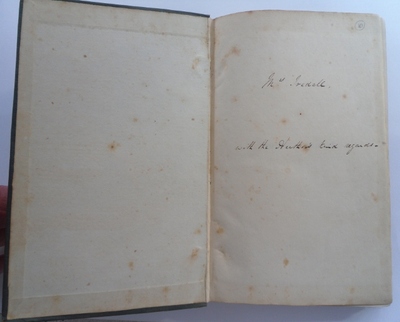 Mrs Iredell.
with the Author's kind regards.